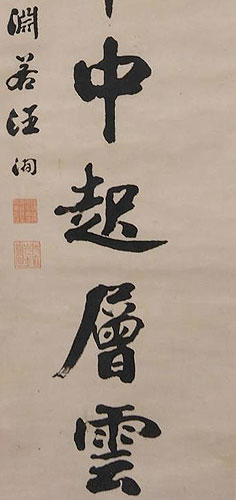 中起層雲
淵若汪洵